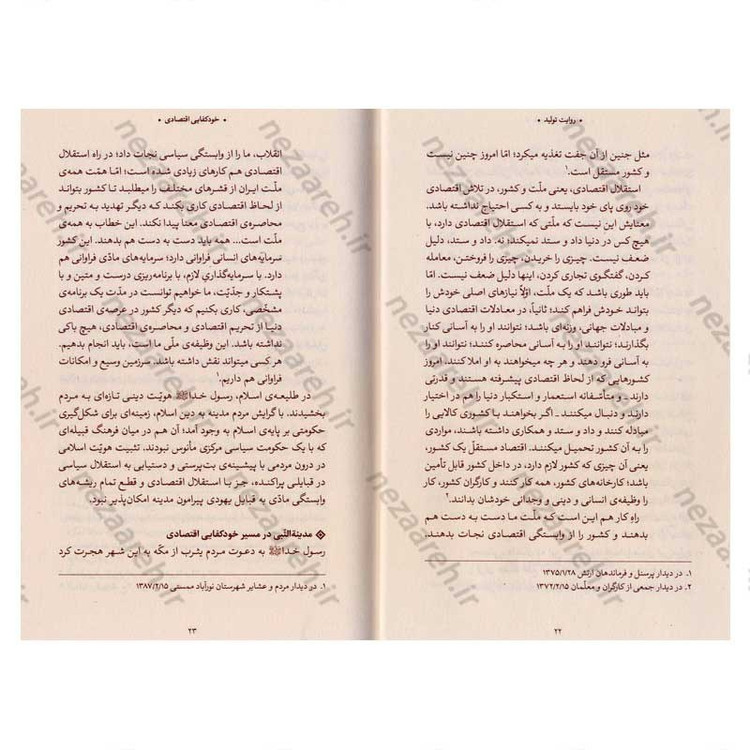 • روایت تولید •
مثل جنین از آن جفت تغذیه میکرد؛ امّا امروز چنین نیست
و کشور مستقل است.۱
استقلال اقتصادی، یعنی ملّت و کشور، در تلاش اقتصادی
خود روی پای خود بایستد و به کسی احتیاج نداشته باشد.
معنایش این نیست که ملّتی که استقلال اقتصادی دارد، با
هیچ کس در دنیا داد و ستد نمیکند؛ نه، داد و ستد، دلیل
ضعف نیست. چیزی را خریدن، چیزی را فروختن، معامله
کردن، گفتگوی تجاری کردن، اینها دلیل ضعف نیست. امّا
باید طوری باشد که یک ملّت، اوّلاً نیازهای اصلی خودش را
بتواند خودش فراهم کند؛ ثانیاً، در معادلات اقتصادی دنیا
و مبادلات جهانی، وزنه‌ای باشد؛ نتوانند او را به آسانی کنار
بگذارند؛ نتوانند او را به آسانی محاصره کنند؛ نتوانند او را
به آسانی فرو دهند و هر چه میخواهند به او املا کنند. امروز
کشورهایی که از لحاظ اقتصادی پیشرفته هستند و قدرتی
دارند ـ و متأسّفانه استعمار و استکبار دنیا را هم در اختیار
دارند و دنبال میکنند ـ اگر بخواهند با کشوری کالایی را
مبادله کنند و داد و ستد و همکاری داشته باشند، مواردی
را به آن کشور تحمیل میکنند. اقتصاد مستقلّ یک کشور،
یعنی آن چیزی که کشور لازم دارد، در داخل کشور قابل تأمین
باشد؛ کارخانه‌های کشور، همه کار کنند و کارگران کشور، کار
را وظیفه‌ی انسانی و دینی و وجدانی خودشان بدانند.۲
راه کار هم این است که ملّت ما دست به دست هم
بدهند و کشور را از وابستگی اقتصادی نجات بدهند.
۱. در دیدار پرسنل و فرماندهان ارتش ۱۳۷۵/۱/۲۸
۲. در دیدار جمعی از کارگران و معلّمان ۱۳۷۲/۲/۱۵
۲۲
• خودکفایی اقتصادی •
انقلاب، ما را از وابستگی سیاسی نجات داد؛ در راه استقلال
اقتصادی هم کارهای زیادی شده است؛ امّا همّت همه‌ی
ملّت ایران از قشرهای مختلف را میطلبد تا کشور بتواند
از لحاظ اقتصادی کاری بکند که دیگر تهدید به تحریم و
محاصره‌ی اقتصادی معنا پیدا نکند. این خطاب به همه‌ی
ملّت است... همه باید دست به دست هم بدهند. این کشور
سرمایه‌های انسانی فراوانی دارد؛ سرمایه‌های مادّی فراوانی هم
دارد. با سرمایه‌گذاریِ لازم، با برنامه‌ریزی درست و متین و با
پشتکار و جدّیّت، ما خواهیم توانست در مدّت یک برنامه‌ی
مشخّصی، کاری بکنیم که دیگر کشور در عرصه‌ی اقتصادی
دنیا از تحریم اقتصادی و محاصره‌ی اقتصادی، هیچ باکی
نداشته باشد. این وظیفه‌ی ملّی ما است، باید انجام بدهیم.
هر کسی میتواند نقش داشته باشد. سرزمین وسیع و امکانات
فراوانی هم داریم.۱
در طلیعه‌ی اسلام، رسول خداﷺ هویّت دینی تازه‌ای به مردم
بخشیدند. با گرایش مردم مدینه به دین اسلام، زمینه‌ای برای شکل‌گیری
حکومتی بر پایه‌ی اسلام به وجود آمد؛ آن هم در میان فرهنگ قبیله‌ای
که با یک حکومت سیاسی مرکزی مأنوس نبودند. تثبیت هویّت اسلامی
در درون مردمی با پیشینه‌ی بت‌پرستی و دستیابی به استقلال سیاسی
در قبایلی پراکنده، جز با استقلال اقتصادی و قطع تمام ریشه‌های
وابستگی مادّی به قبایل یهودی پیرامون مدینه امکان‌پذیر نبود.
مدینةالنّبی در مسیر خودکفایی اقتصادی
رسول خداﷺ به دعوت مردم یثرب از مکّه به این شهر هجرت کرد
۱. در دیدار مردم و عشایر شهرستان نورآباد ممسنی ۱۳۸۷/۲/۱۵
۲۳
nezaareh.ir